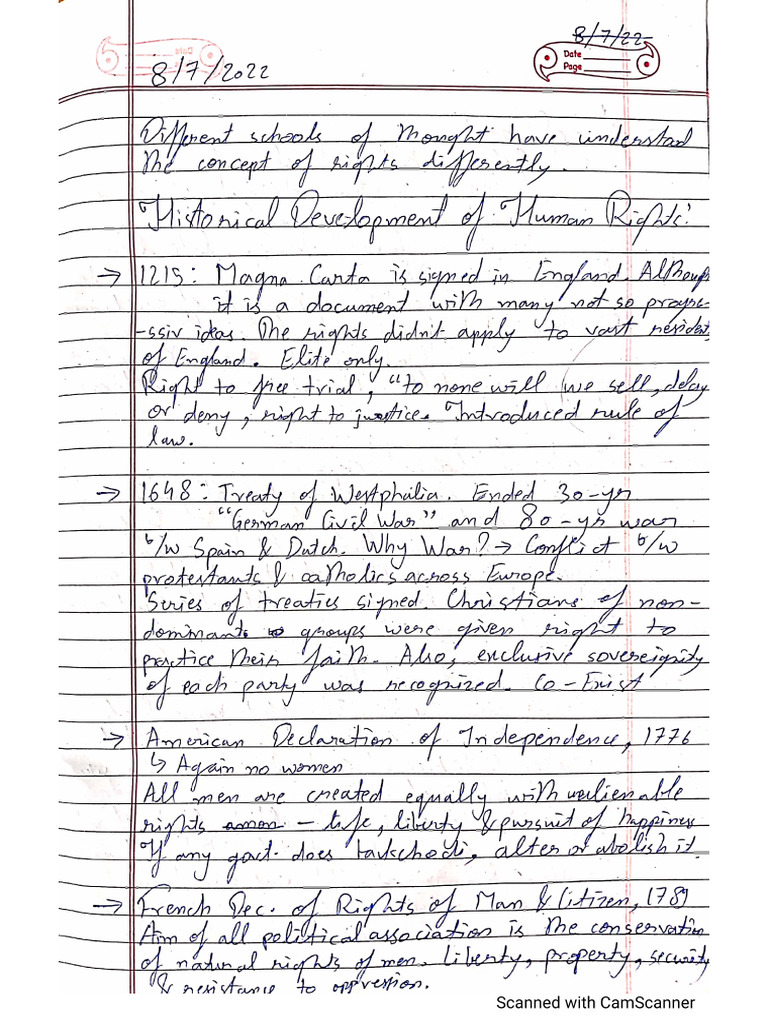 8/7/22
Date
Page
8/7/2022
Different schools of thought have understood
the concept of rights differently.
Historical Development of Human Rights:
→ 1215: Magna Carta is signed in England. Although
it is a document with many not so progre-
-ssiv ideas. The rights didn't apply to vast resident
of England. Elite only.
Right to free trial, "to none will we sell, delay
or deny, right to justice. Introduced rule of
law.
→ 1648: Treaty of Westphalia. Ended 30-yr
"German Civil War" and 80-yr war
b/w Spain & Dutch. Why War? → Conflict b/w
protestants & catholics across Europe.
Series of treaties signed. Christians of non-
dominant groups were given right to
practice their faith. Also, exclusive sovereignity
of each party was recognized. Co-Exist
→ American Declaration of Independence, 1776
↳ Again no women
All men are created equally with unalienable
rights – life, liberty & pursuit of happiness
If any govt. does, alter or abolish it.
→ French Dec. of Rights of Man & Citizen, 1789
Aim of all political association is the conservation
of natural rights of men. liberty, property, security
& resistance to oppression.
Scanned with CamScanner